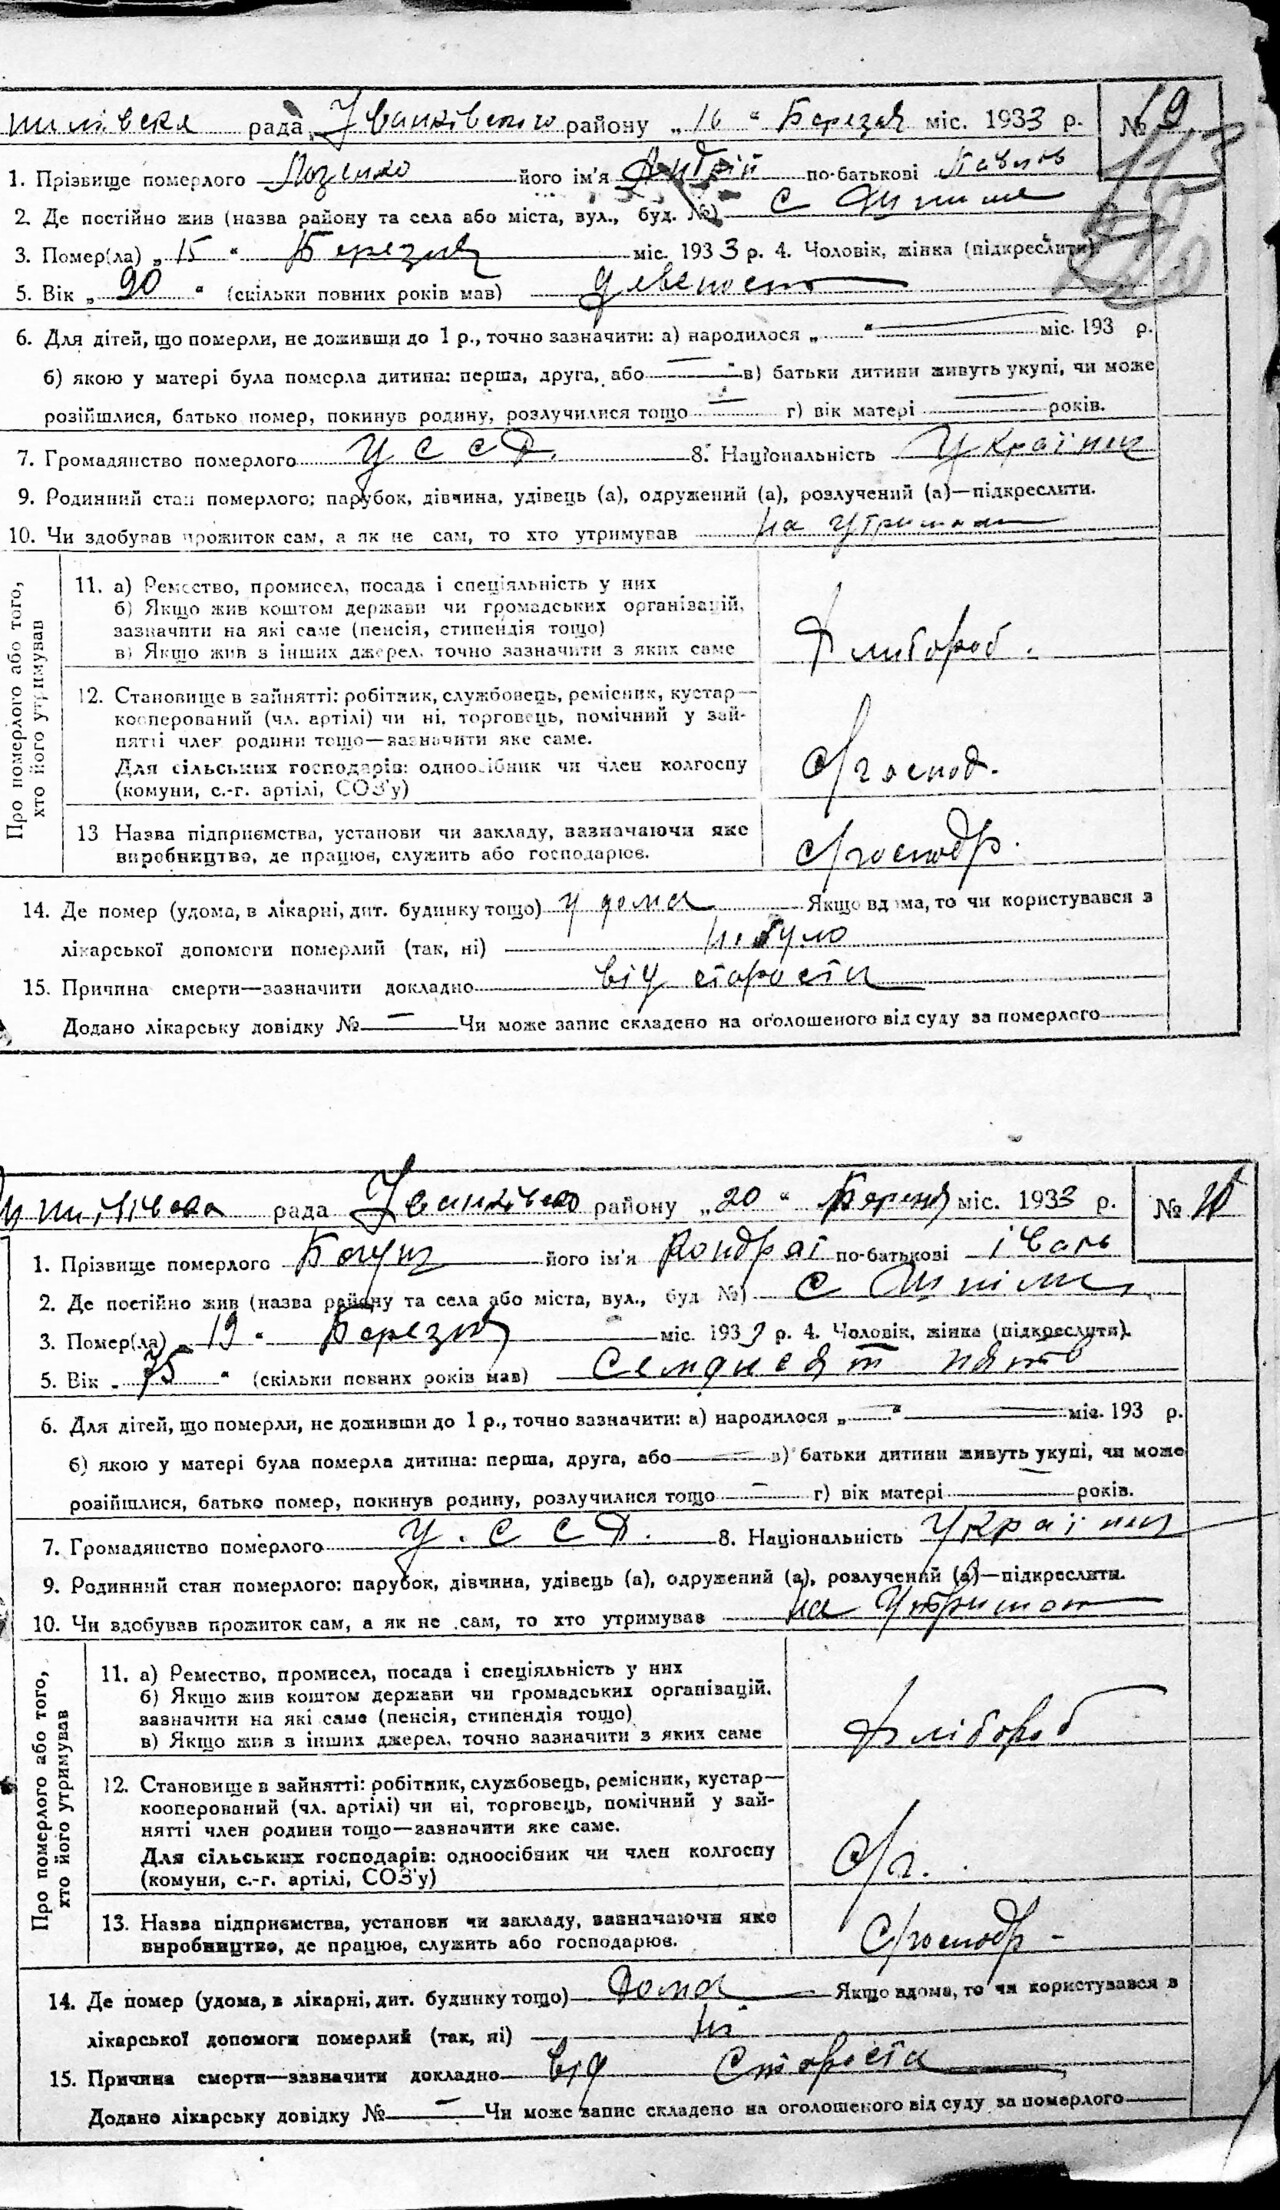 рада Іванківского району „16" Березня міс. 1933 р. № 19
113
1. Прізвище померлого Лозенко його ім'я Андрій по-батькові Павлов
2. Де постійно жив (назва району та села або міста, вул., буд. №) с
3. Помер(ла) „15" Березня міс. 1933 р. 4. Чоловік, жінка (підкреслити)
5. Вік „90" (скільки повних років мав) девеносто
6. Для дітей, що померли, не доживши до 1 р., точно зазначити: а) народилося „ " міс. 193 р.
б) якою у матері була померла дитина: перша, друга, або в) батьки дитини живуть укупі, чи може
розійшлися, батько помер, покинув родину, розлучилися тощо г) вік матері років.
7. Громадянство померлого У С С Р. 8. Національність Українец
9. Родинний стан померлого: парубок, дівчина, удівець (а), одружений (а), розлучений (а)—підкреслити.
10. Чи здобував прожиток сам, а як не сам, то хто утримував на утриман
Про померлого або того, хто його утримував
11. а) Ремество, промисел, посада і спеціяльність у них
б) Якщо жив коштом держави чи громадських організацій,
зазначити на які саме (пенсія, стипендія тощо)
в) Якщо жив з інших джерел, точно зазначити з яких саме
Хлибороб.
12. Становище в зайнятті: робітник, службовець, ремісник, кустар—
кооперований (чл. артілі) чи ні, торговець, помічний у зай-
нятті член родини тощо—зазначити яке саме.
Для сільських господарів: одноосібник чи член колгоспу
(комуни, с.-г. артілі, СОЗ'у)
с/господ.
13 Назва підприємства, установи чи закладу, зазначаючи яке
виробництво, де працює, служить або господарює.
с/господр.
14. Де помер (удома, в лікарні, дит. будинку тощо) у дома Якщо вдома, то чи користувався з
лікарської допомоги померлий (так, ні) небуло
15. Причина смерти—зазначити докладно від старости
Додано лікарську довідку № — Чи може запис складено на оголошеного від суду за померлого
рада Іванківско району „20" Березня міс. 1933 р. №
1. Прізвище померлого його ім'я Кондрат по-батькові Івань
2. Де постійно жив (назва району та села або міста, вул., буд №) с
3. Помер(ла) „19" Березня міс. 1933 р. 4. Чоловік, жінка (підкреслити).
5. Вік „75" (скільки повних років мав) Семдисят пять
6. Для дітей, що померли, не доживши до 1 р., точно зазначити: а) народилося „ " міс. 193 р.
б) якою у матері була померла дитина: перша, друга, або в) батьки дитини живуть укупі, чи може
розійшлися, батько помер, покинув родину, розлучилися тощо г) вік матері років.
7. Громадянство померлого У. С С Р. 8. Національність Українец
9. Родинний стан померлого: парубок, дівчина, удівець (а), одружений (а), розлучений (а)—підкреслити.
10. Чи здобував прожиток сам, а як не сам, то хто утримував на Утриман
Про померлого або того, хто його утримував
11. а) Ремество, промисел, посада і спеціяльність у них
б) Якщо жив коштом держави чи громадських організацій,
зазначити на які саме (пенсія, стипендія тощо)
в) Якщо жив з інших джерел, точно зазначити з яких саме
Хлібороб
12. Становище в зайнятті: робітник, службовець, ремісник, кустар—
кооперований (чл. артілі) чи ні, торговець, помічний у зай-
нятті член родини тощо—зазначити яке саме.
Для сільських господарів: одноосібник чи член колгоспу
(комуни, с.-г. артілі, СОЗ'у)
С/г.
13. Назва підприємства, установи чи закладу, зазначаючи яке
виробництво, де працює, служить або господарює.
С/господр -
14. Де помер (удома, в лікарні, дит. будинку тощо) Дома Якщо вдома, то чи користувався з
лікарської допомоги померлий (так, ні) ні
15. Причина смерти—зазначити докладно від Старости
Додано лікарську довідку № — Чи може запис складено на оголошеного від суду за померлого